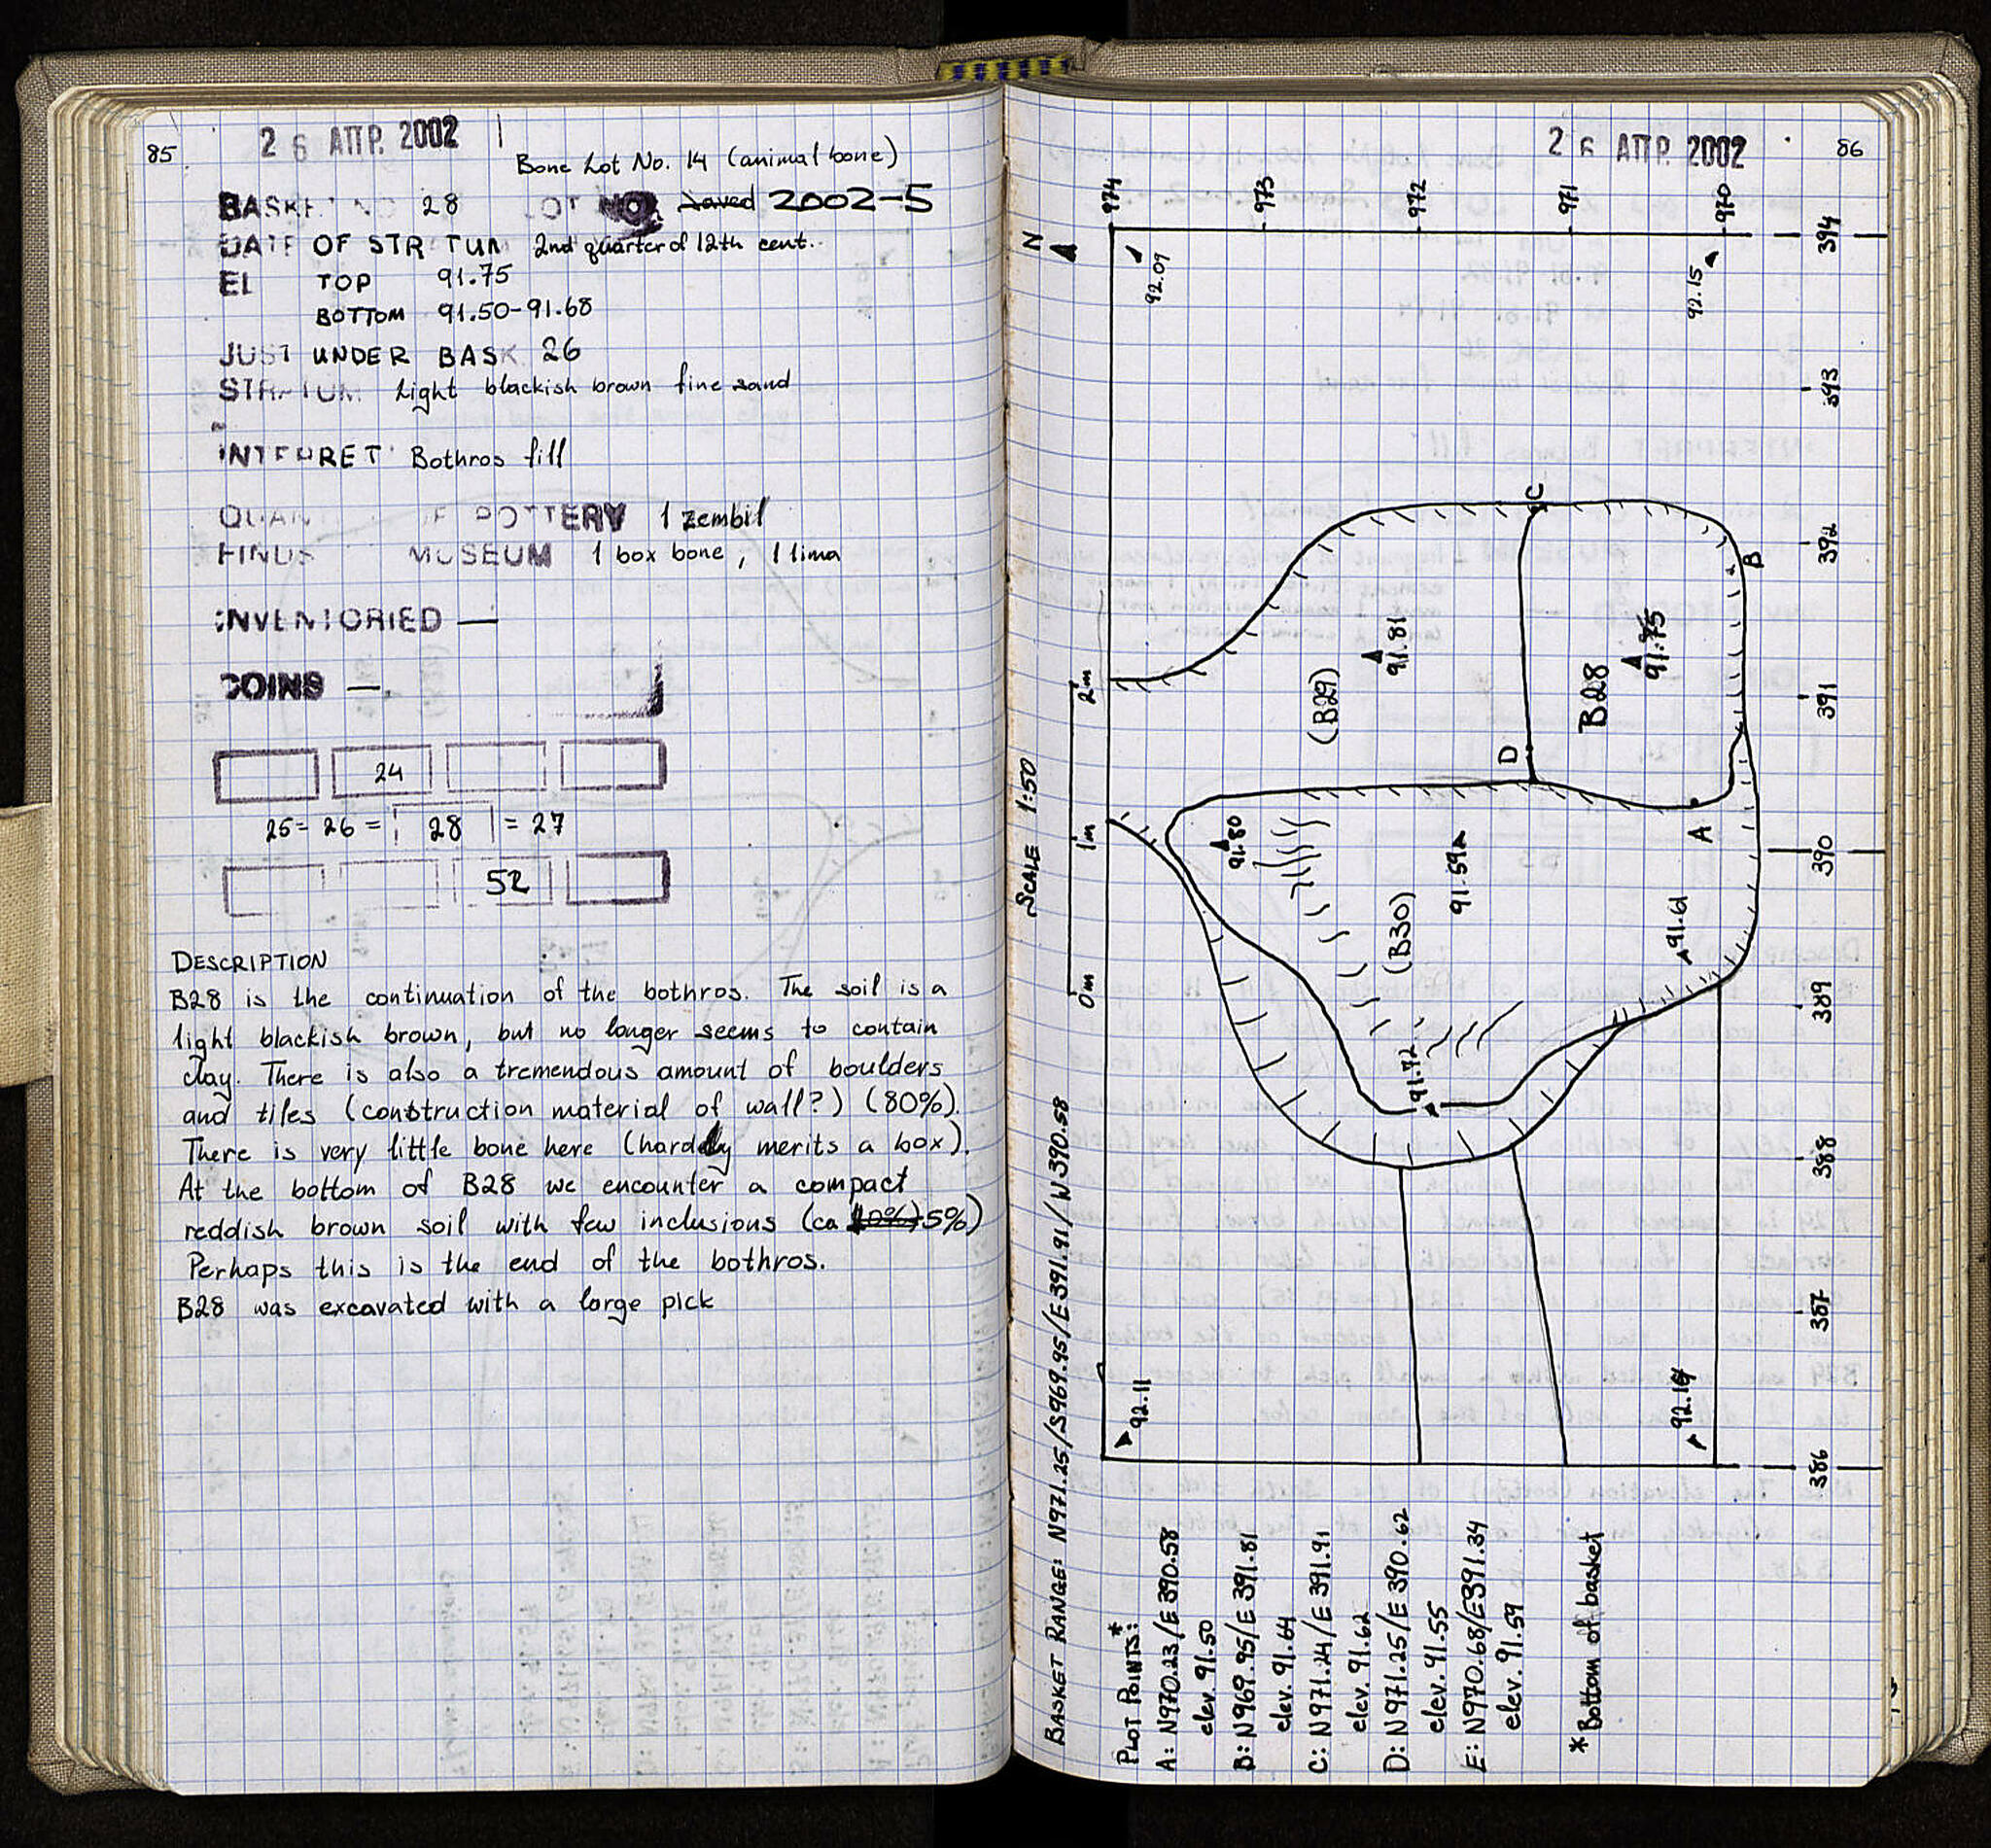 85
26 ΑΠΡ. 2002
Bone Lot No. 14 (animal bone)
BASKET NO 28 LOT NO. saved 2002-5
DATE OF STRATUM 2nd quarter of 12th cent.
EL TOP 91.75
BOTTOM 91.50-91.68
JUST UNDER BASK 26
STRATUM Light blackish brown fine sand
INTERPRET Bothros fill
QUANT OF POTTERY 1 zembil
FINDS MUSEUM 1 box bone, 1 lima
INVENTORIED —
COINS —
24
25 = 26 = 28 = 27
52
DESCRIPTION
B28 is the continuation of the bothros. The soil is a
light blackish brown, but no longer seems to contain
clay. There is also a tremendous amount of boulders
and tiles (construction material of wall?) (80%).
There is very little bone here (hardly merits a box).
At the bottom of B28 we encounter a compact
reddish brown soil with few inclusions (ca 10%) 5%)
Perhaps this is the end of the bothros.
B28 was excavated with a large pick
26 ΑΠΡ. 2002
86
BASKET RANGE: N971.25/S969.95/E391.91/W390.58
SCALE 1:50
0m 1m 2m
N
974
973
972
971
970
386 387 388 389 390 391 392 393 394
92.11
92.09
92.14
92.15
91.80
91.72
(B30)
91.59
91.61
(B29)
91.81
B28
91.75
A
B
C
D
PLOT POINTS:*
A: N970.23/E390.58
elev. 91.50
B: N969.95/E391.81
elev. 91.64
C: N971.24/E391.91
elev. 91.62
D: N971.25/E390.62
elev. 91.55
E: N970.68/E391.34
elev. 91.59
*Bottom of basket